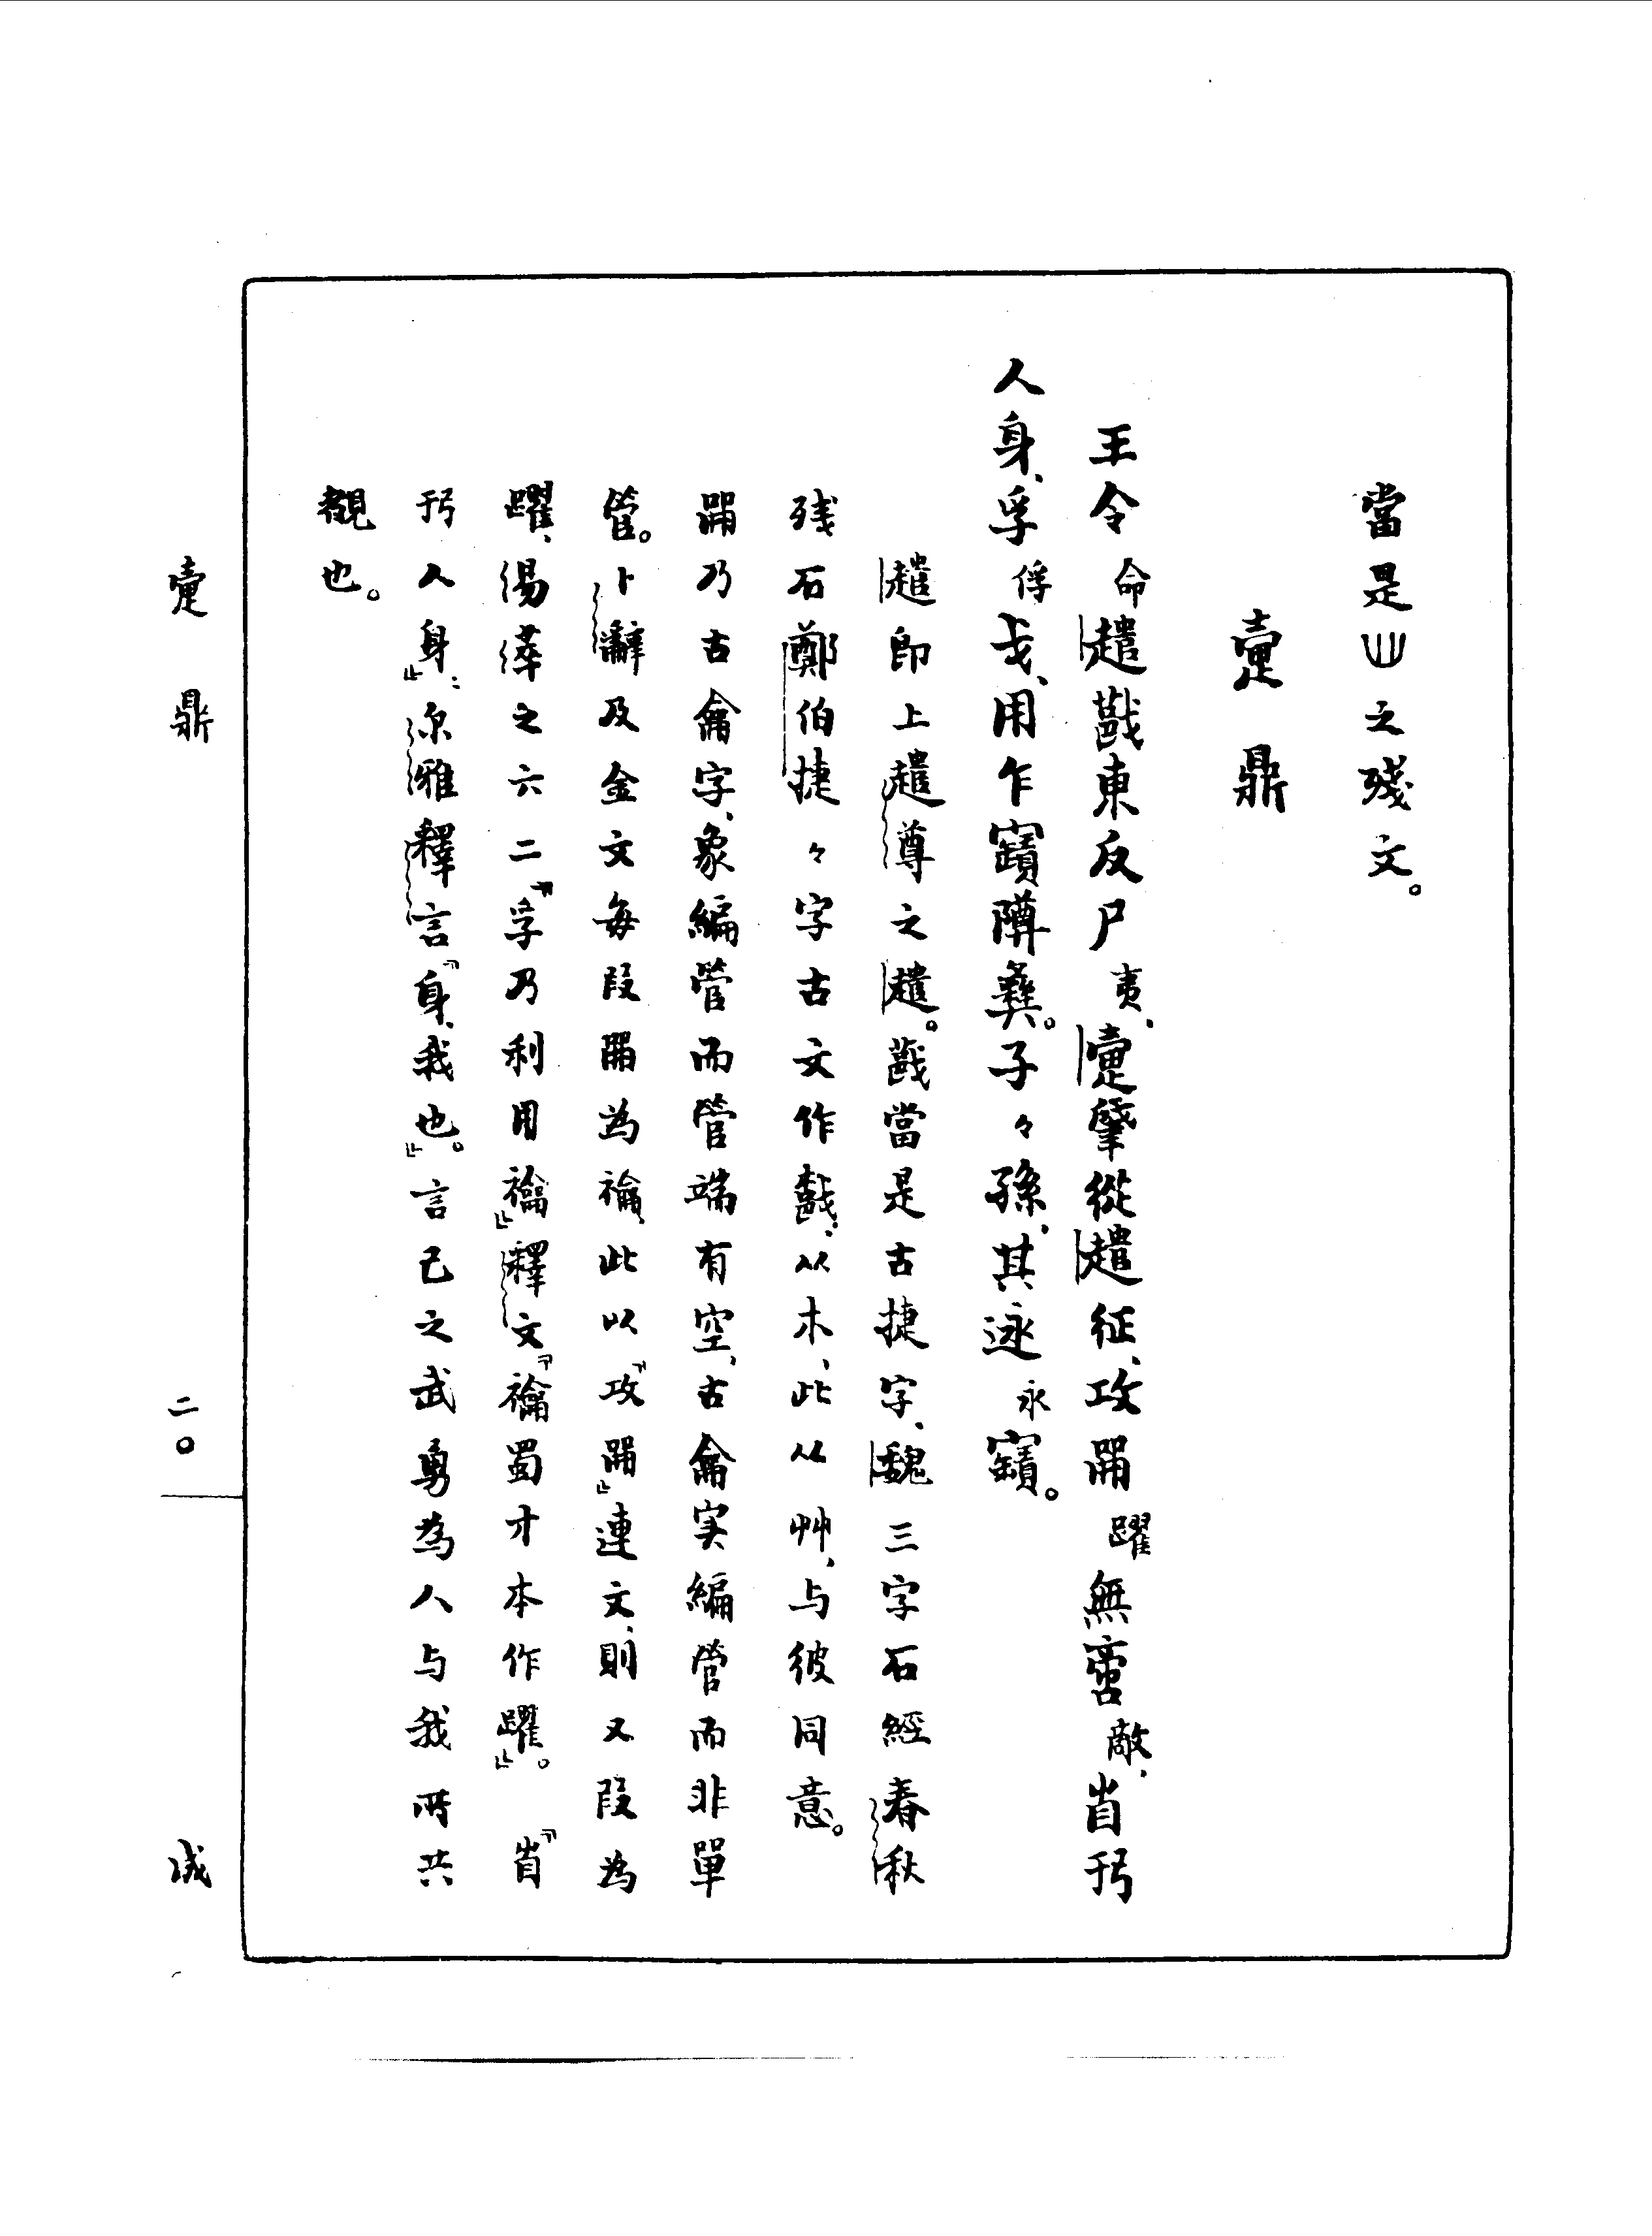 當是山之殘文。
疐鼎
王令命趞𢦚東反尸夷，疐肇從趞征，攻龠躍無啻敵，省于
人身，孚俘戈，用乍寶𨼦彝。子々孫，其迷永寶。
趞即上趞尊之趞。當是古捷字，魏三字石經春秋
残石鄭伯捷々字古文作，从木，此从艸，与彼同意。
乃古龠字，象編管而管端有空，古龠实編管而非單
管。卜辭及金文每段為禴，此以『攻』連文，則又段為
躍，昜萃之六二『孚乃利用禴』釋文『禴蜀才本作躍』。『省
于人身』：尔雅釋言『身，我也』。言己之武勇為人与我所共
覩也。
疐鼎
二〇
成